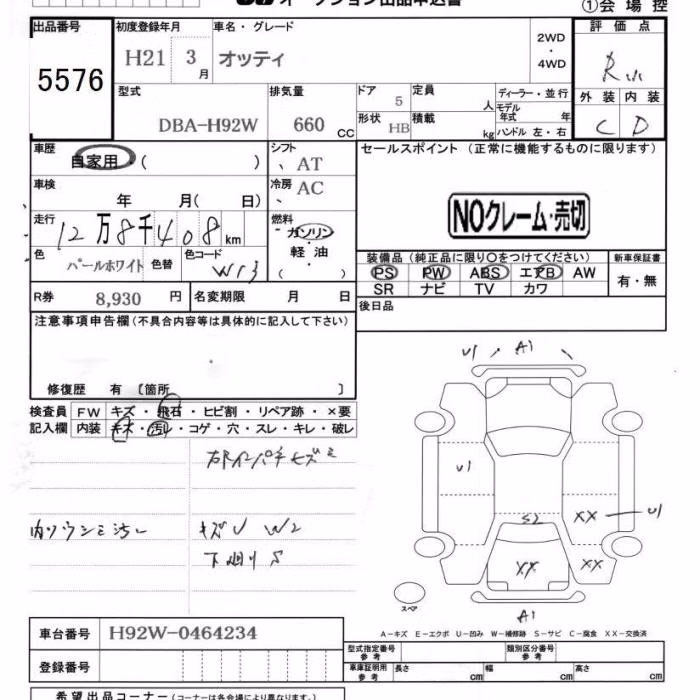 オークション出品申込書
①会場控
出品番号 初度登録年月 車名・グレード 評価点
5576 H21 3月 オッティ 2WD・4WD R
型式 排気量 ドア 5 定員 人 ディーラー・並行 外装 内装
DBA-H92W 660 CC 形状 HB 積載 kg モデル年式 年 C D
ハンドル 左・右
車歴 自家用・( ) シフト AT セールスポイント (正常に機能するものに限ります)
車検 年 月( 日) 冷房 AC
NOクレーム・売切
走行 12万8千408km 燃料 ガソリン・軽油・( )
色 パールホワイト 色替 色コード W13
装備品 (純正品に限り○をつけてください) 新車保証書
PS PW ABS エアB AW 有・無
SR ナビ TV カワ
R券 8,930円 名変期限 月 日 後日品
注意事項申告欄(不具合内容等は具体的に記入して下さい)
修復歴 有 〔箇所 〕
検査員 FW キズ・飛石・ヒビ割・リペア跡・×要
記入欄 内装 キズ・汚レ・コゲ・穴・スレ・キレ・破レ
U1 A1
U1
S2 XX U1
XX XX
キズU W2
下廻りS
スペア
A1
A-キズ E-エクボ U-凹み W-補修跡 S-サビ C-腐食 XX-交換済
車台番号 H92W-0464234
型式指定番号参考 類別区分番号参考
登録番号 車庫証明用参考 長さ cm 幅 cm 高さ cm
希望出品コーナー(コーナーは各会場により異なります)